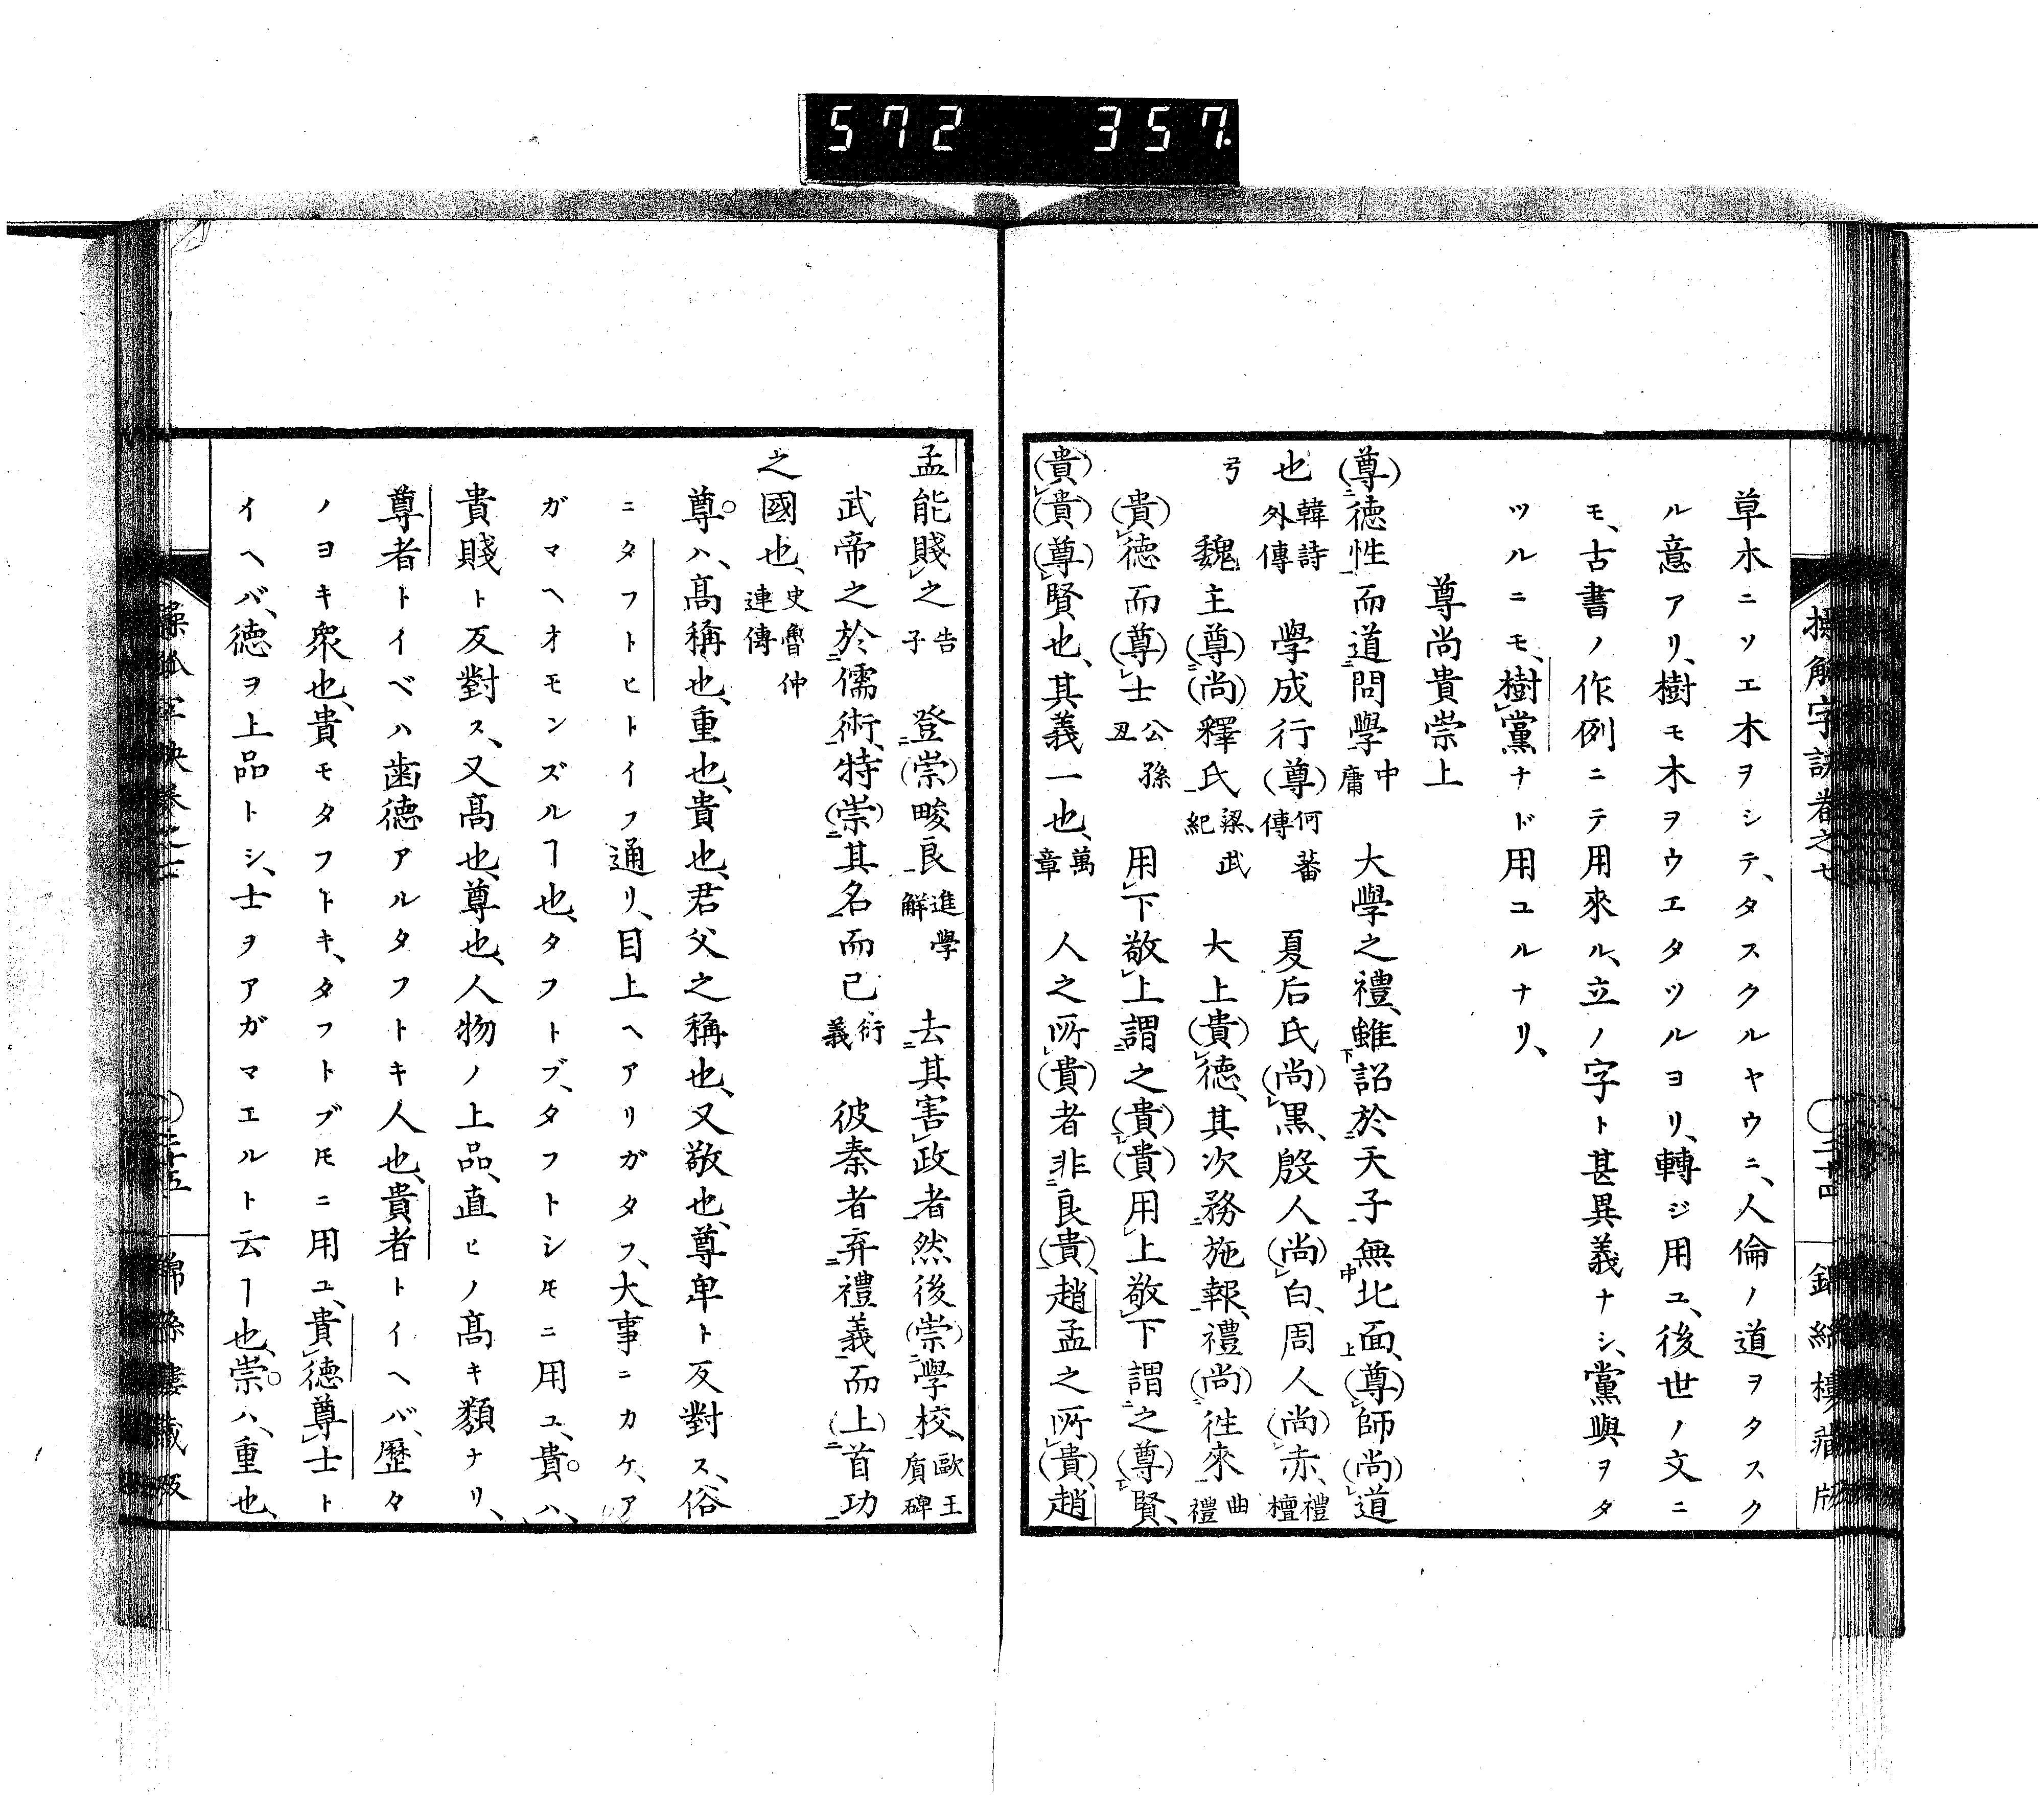 572 357.
草木ニソエ木ヲシテ、タスクルヤウニ、人倫ノ道ヲタスク
ル意アリ、樹モ木ヲウエタツルヨリ、轉ジ用ユ、後世ノ文ニ
モ、古書ノ作例ニテ用來ル、立ノ字ト甚異義ナシ、黨與ヲタ
ツルニモ、樹黨ナド用ユルナリ、
尊尚貴崇上
(尊)徳性而道問學中庸 大學之禮、雖詔於天子無北面、(尊)師尚道
也韓詩外傳 學成行(尊)何蕃傳 夏后氏(尚)黒、殷人(尚)白、周人(尚)赤、禮檀
弓 魏主(尊)(尚)釋氏梁武紀 大上(貴)徳、其次務施報、禮(尚)往來曲禮
(貴)徳而(尊)士公孫丑 用下敬上謂之(貴)(貴)用上敬下謂之(尊)賢、
(貴)(貴)(尊)賢也、其義一也、萬章 人之所(貴)者非良(貴)、趙孟之所(貴)、趙
孟能賤之告子 登(崇)畯良進學解 去其害政者然後(崇)學校、歐王廣碑
武帝之於儒術、特(崇)其名而已衍義 彼秦者弃禮義而(上)首功
之國也、史魯仲連傳
尊ハ、髙稱也、重也、貴也、君父之稱也、又敬也、尊卑ト反對ス、俗
ニタフトヒトイフ通リ、目上ヘアリガタス、大事ニカケ、ア
ガマヘオモンズルヿ也、タフトブ、タフトシ𪜈ニ用ユ、貴ハ、
貴賤ト反對ス、又髙也、尊也、人物ノ上品、直ヒノ髙キ類ナリ、
尊者トイベハ歯徳アルタフトキ人也、貴者トイヘバ、歴々
ノヨキ衆也、貴モタフトキ、タフトブ𪜈ニ用ユ、貴徳尊士ト
イヘバ、徳ヲ上品トシ、士ヲアガマエルト云ヿ也、崇ハ、重也、
解字訣卷之七
二十四
錦絲樓藏版